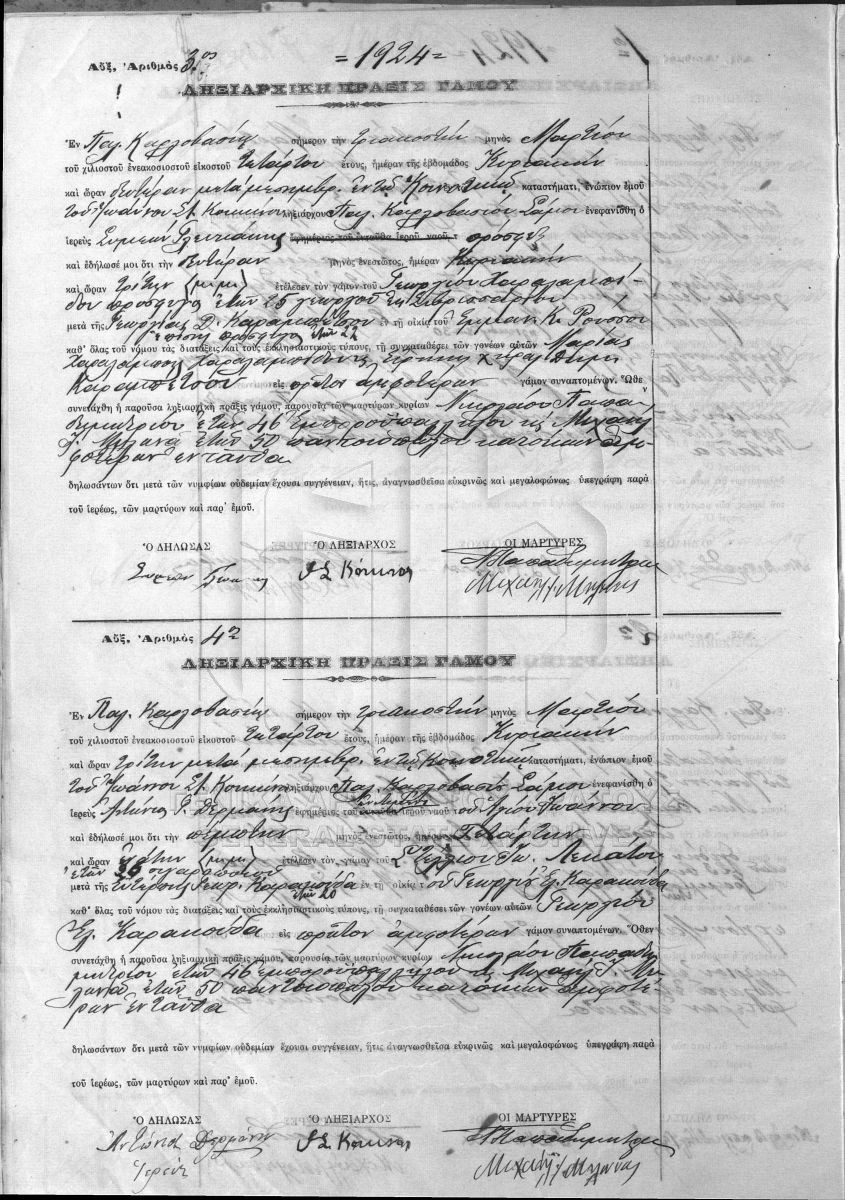 Αὔξ. Ἀριθμὸς 3ος
=1924=
ΛΗΞΙΑΡΧΙΚΗ ΠΡΑΞΙΣ ΓΑΜΟΥ
Ἐν Παλ. Καρλοβασίῳ σήμερον τὴν τριακοστὴν μηνὸς Μαρτίου
τοῦ χιλιοστοῦ ἐνεακοσιοστοῦ εἰκοστοῦ τετάρτου ἔτους, ἡμέραν τῆς ἑβδομάδος Κυριακὴν
καὶ ὥραν δευτέραν μετὰ μεσημβρ. ἐν τῷ Κοινοτικῷ καταστήματι, ἐνώπιον ἐμοῦ
τοῦ Ἰωάννου Στ. Κοκκίνου ληξιάρχου Παλ. Καρλοβασίου Σάμου ἐνεφανίσθη ὁ
ἱερεὺς Συμεὼν ἐφημέριος τοῦ ἐνταῦθα ἱεροῦ ναοῦ πρόσφυξ
καὶ ἐδήλωσέ μοι ὅτι τὴν δευτέραν μηνὸς ἐνεστῶτος, ἡμέραν Κυριακὴν
καὶ ὥραν τρίτην (μ.μ.) ἐτέλεσεν τὸν γάμον τοῦ Γεωργίου Χαραλαμπί-
δου πρόσφυγος ἐτῶν 25 γεωργοῦ ἐκ
μετὰ τῆς Γεωργίας Δ. Καραμπέτσου ἐν τῇ οἰκίᾳ τοῦ Ἐμμαν. Κ. Ρούσσου
ἐπίσης πρόσφυγος ἐτῶν 22
καθ' ὅλας τοῦ νόμου τὰς διατάξεις καὶ τοὺς ἐκκλησιαστικοὺς τύπους, τῇ συγκαταθέσει τῶν γονέων αὐτῶν Μαρίας
Χαραλάμπους Χαραλαμπίδου Εἰρήνης χήρας Δημ.
Καραμπέτσου εἰς πρῶτον ἀμφοτέρων γάμον συναπτομένων. Ὅθεν
συνετάχθη ἡ παροῦσα ληξιαρχικὴ πρᾶξις γάμου, παρουσίᾳ τῶν μαρτύρων κυρίων Νικολάου Παπα-
δημητρίου ἐτῶν 46 ἐμποροϋπαλλήλου κ. Μιχαὴλ
Γ. Μυλωνᾶ ἐτῶν 50 παντοπώλου κατοίκων ἀμ-
φοτέρων ἐνταῦθα
δηλωσάντων ὅτι μετὰ τῶν νυμφίων οὐδεμίαν ἔχουσι συγγένειαν, ἥτις, ἀναγνωσθεῖσα εὐκρινῶς καὶ μεγαλοφώνως ὑπεγράφη παρὰ
τοῦ ἱερέως, τῶν μαρτύρων καὶ παρ' ἐμοῦ.
Ὁ ΔΗΛΩΣΑΣ Ὁ ΛΗΞΙΑΡΧΟΣ ΟΙ ΜΑΡΤΥΡΕΣ
Συμεὼν ΙΣ Κόκκινος Ν Παπαδημητρίου
Μιχαὴλ Γ Μυλωνᾶς
Αὔξ. Ἀριθμὸς 4η
ΛΗΞΙΑΡΧΙΚΗ ΠΡΑΞΙΣ ΓΑΜΟΥ
Ἐν Παλ. Καρλοβασίῳ σήμερον τὴν τριακοστὴν μηνὸς Μαρτίου
τοῦ χιλιοστοῦ ἐνεακοσιοστοῦ εἰκοστοῦ τετάρτου ἔτους, ἡμέραν τῆς ἑβδομάδος Κυριακὴν
καὶ ὥραν τρίτην μετὰ μεσημβρ. ἐν τῷ Κοινοτικῷ καταστήματι, ἐνώπιον ἐμοῦ
τοῦ Ἰωάννου Στ. Κοκκίνου ληξιάρχου Παλ. Καρλοβασίου Σάμου ἐνεφανίσθη ὁ
ἱερεὺς Ἀντώνιος Γ. Δερμάνης ἐφημέριος τοῦ ἐνταῦθα ἱεροῦ ναοῦ τοῦ Ἁγίου Ἰωάννου
καὶ ἐδήλωσέ μοι ὅτι τὴν πέμπτην μηνὸς ἐνεστῶτος, ἡμέραν Τετάρτην
καὶ ὥραν (μ.μ.) ἐτέλεσεν τὸν γάμον τοῦ Στυλιανοῦ Λεκάτου
ἐτῶν
μετὰ τῆς Γεωρ. Καρακούδα ἐν τῇ οἰκίᾳ τοῦ Γεωργίου Ἐλ. Καρακούδα
ἐτῶν 20
καθ' ὅλας τοῦ νόμου τὰς διατάξεις καὶ τοὺς ἐκκλησιαστικοὺς τύπους, τῇ συγκαταθέσει τῶν γονέων αὐτῶν Γεωργίου
Ἐλ. Καρακούδα εἰς πρῶτον ἀμφοτέρων γάμον συναπτομένων. Ὅθεν
συνετάχθη ἡ παροῦσα ληξιαρχικὴ πρᾶξις γάμου, παρουσίᾳ τῶν μαρτύρων κυρίων Νικολάου Παπαδη-
μητρίου ἐτῶν 46 ἐμποροϋπαλλήλου κ. Μιχαὴλ Γ. Μυ-
λωνᾶ ἐτῶν 50 παντοπώλου κατοίκων ἀμφοτέ-
ρων ἐνταῦθα
δηλωσάντων ὅτι μετὰ τῶν νυμφίων οὐδεμίαν ἔχουσι συγγένειαν, ἥτις ἀναγνωσθεῖσα εὐκρινῶς καὶ μεγαλοφώνως ὑπεγράφη παρὰ
τοῦ ἱερέως, τῶν μαρτύρων καὶ παρ' ἐμοῦ.
Ὁ ΔΗΛΩΣΑΣ Ὁ ΛΗΞΙΑΡΧΟΣ ΟΙ ΜΑΡΤΥΡΕΣ
Ἀντώνιος Δερμάνης ΙΣ Κόκκινος Ν Παπαδημητρίου
Ἱερεὺς Μιχαὴλ Γ Μυλωνᾶς